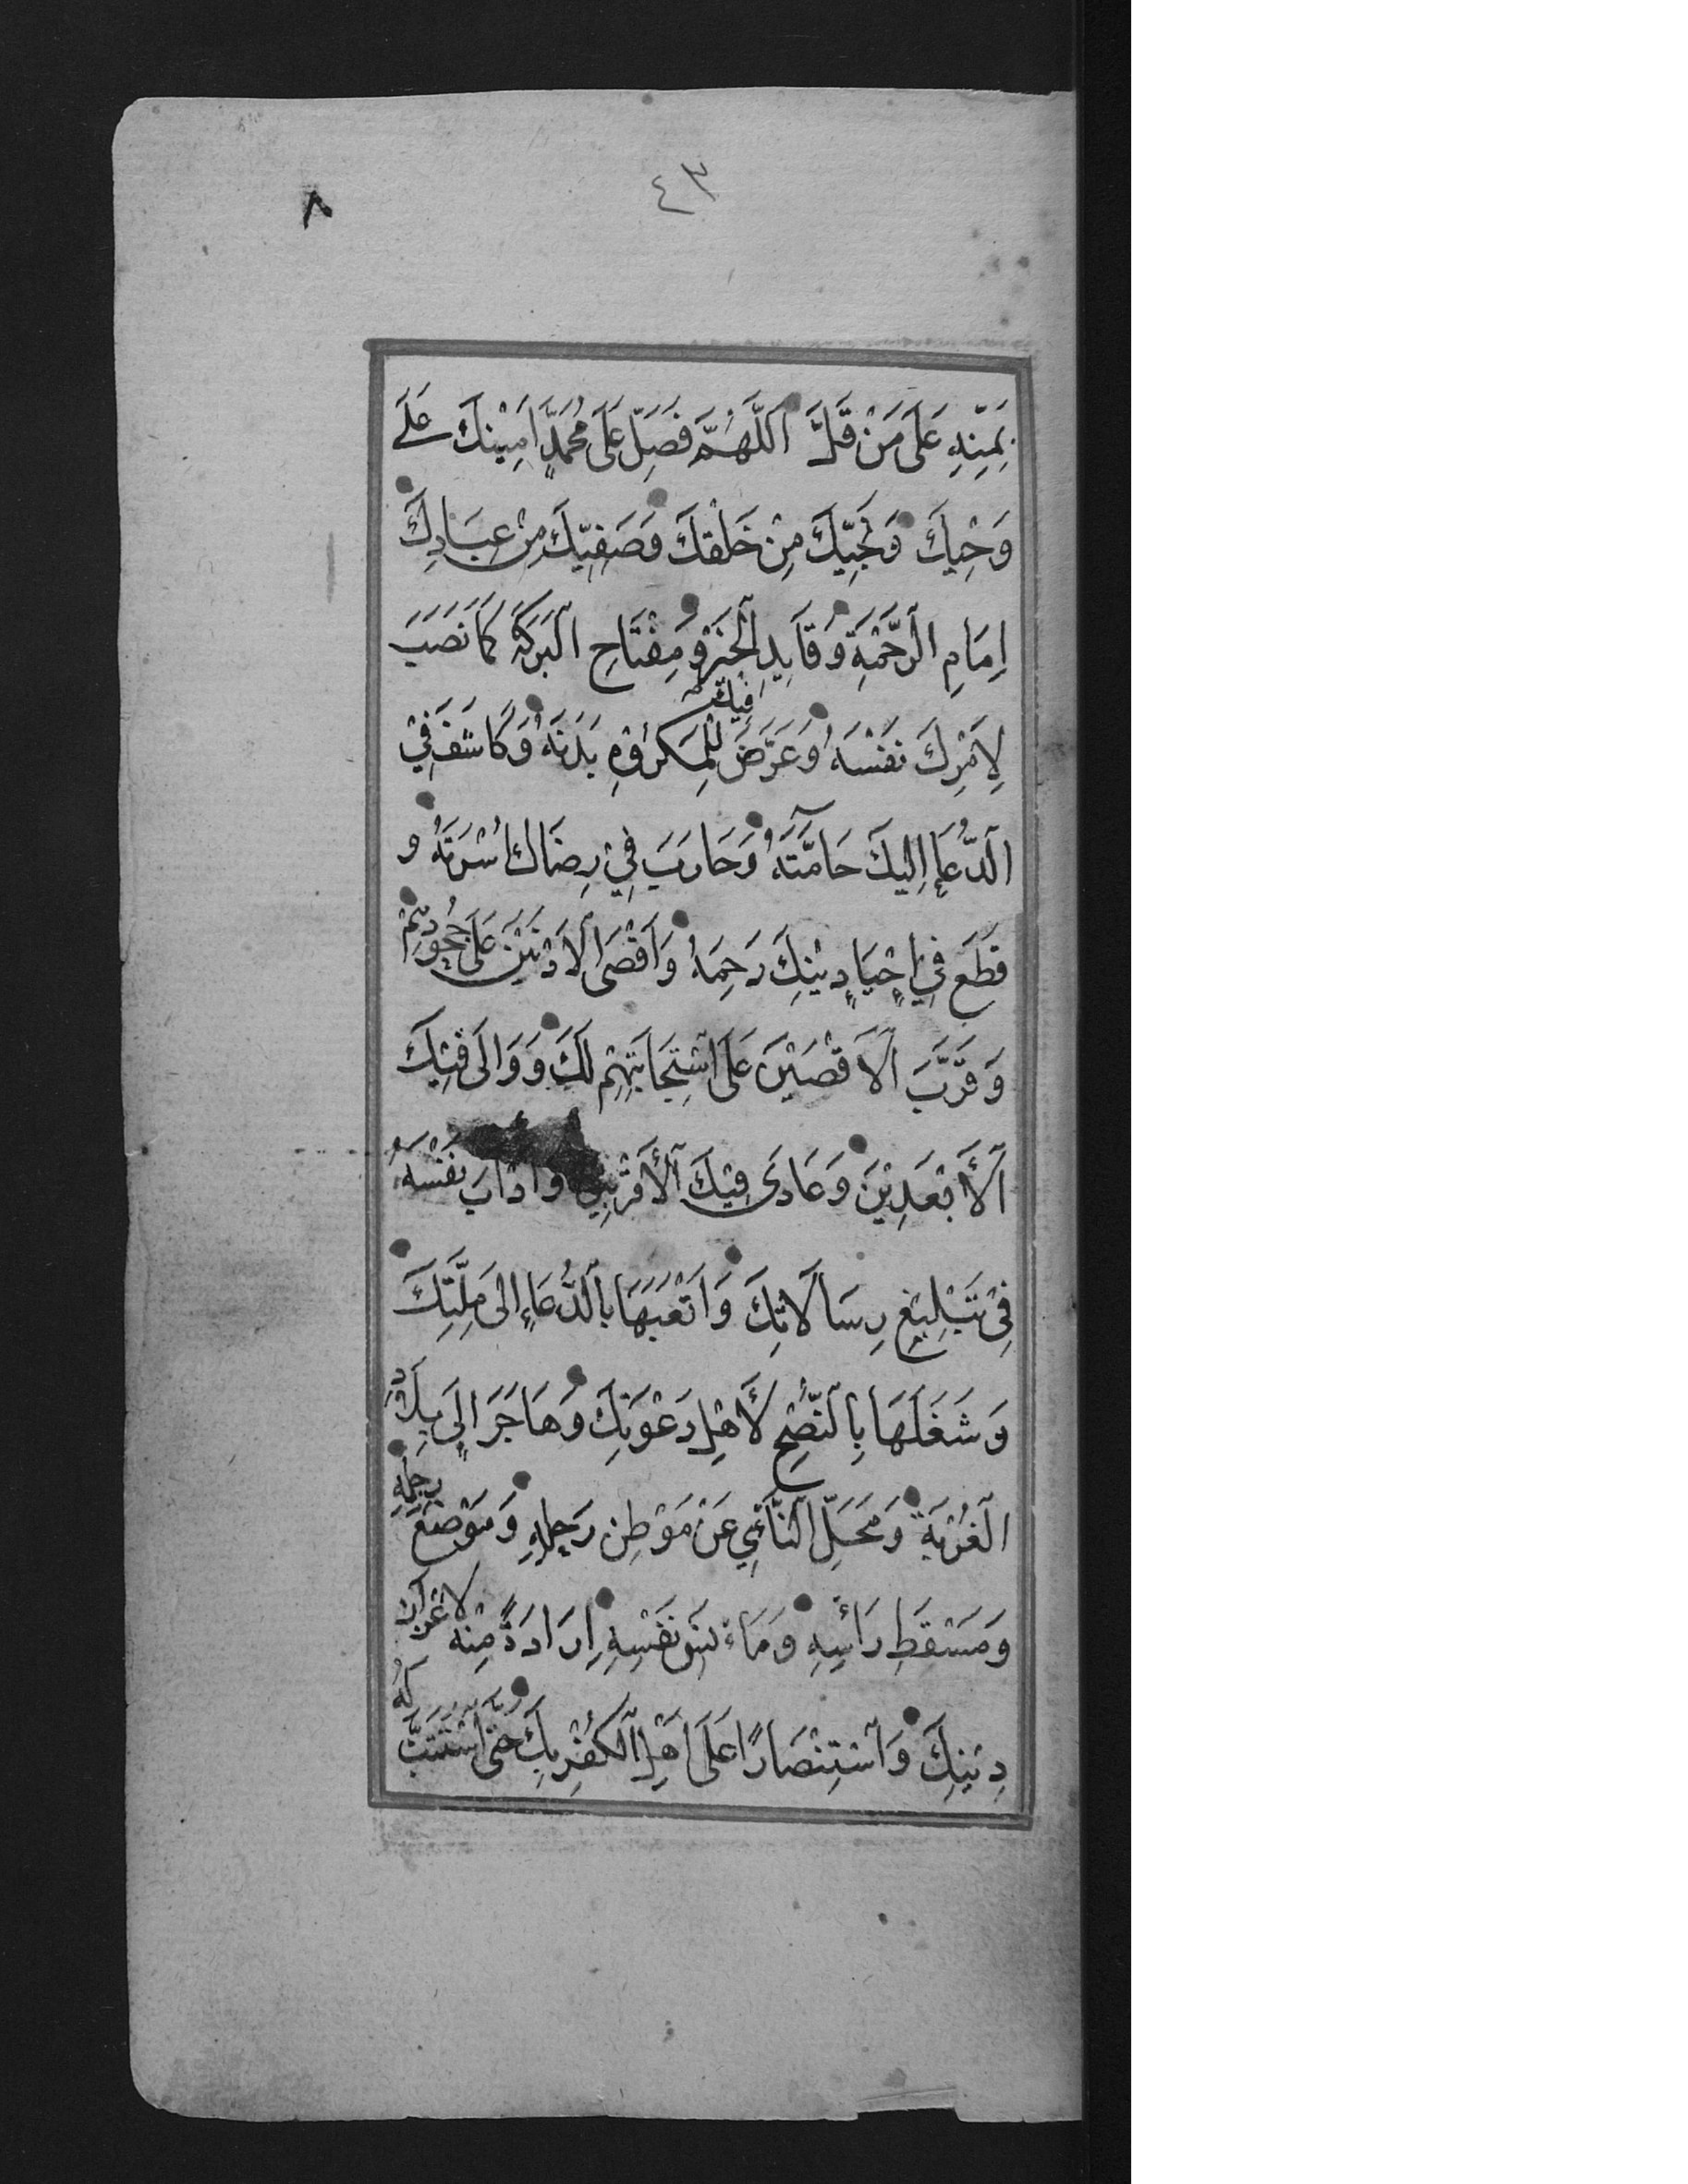 ٤٣
٨
بِمَنِّهِ عَلَى مَنْ قَلَّ اَللّٰهُمَّ فَصَلِّ عَلَى مُحَمَّدٍ اَمِيْنِكَ عَلَى
وَحْيِكَ وَنَجِيِّكَ مِنْ خَلْقِكَ وَصَفِيِّكَ مِنْ عِبَادِكَ
اِمَامِ الرَّحْمَةِ وَقَايِدِ الْخَيْرِ وَمِفْتَاحِ الْبَرَكَةِ كَمَا نَصَبَ
لِاَمْرِكَ نَفْسَهُ وَعَرَّضَ فِيْكَ لِلْمَكْرُوْهِ بَدَنَهُ وَكَاشَفَ فِيْ
الدُّعَاءِ اِلَيْكَ حَامَّتَهُ وَحَارَبَ فِيْ رِضَاكَ اُسْرَتَهُ وَ
قَطَعَ فِيْ اِحْيَاءِ دِيْنِكَ رَحِمَهُ وَاَقْصَى الْاَدْنَيْنَ عَلَى جُحُوْدِهِمْ
وَقَرَّبَ الْاَقْصَيْنَ عَلَى اسْتِجَابَتِهِمْ لَكَ وَوَالَى فِيْكَ
الْاَبْعَدِيْنَ وَعَادَى فِيْكَ الْاَقْرَبِيْنَ وَاَدْاَبَ نَفْسَهُ
فِيْ تَبْلِيْغِ رِسَالَاتِكَ وَاَتْعَبَهَا بِالدُّعَاءِ اِلَى مِلَّتِكَ
وَشَغَلَهَا بِالنُّصْحِ لِاَهْلِ دَعْوَتِكَ وَهَاجَرَ اِلَى بِلَادِ
الْغُرْبَةِ وَمَحَلِّ النَّأْيِ عَنْ مَوْطِنِ رَحْلِهِ وَمَوْضِعِ رِجْلِهِ
وَمَسْقَطِ رَأْسِهِ وَمَاْنَسِ نَفْسِهِ اِرَادَةً مِنْهُ لِاِعْزَازِ
دِيْنِكَ وَاسْتِنْصَارًا عَلَى اَهْلِ الْكُفْرِ بِكَ حَتَّى اسْتَتَبَّ لَهُ